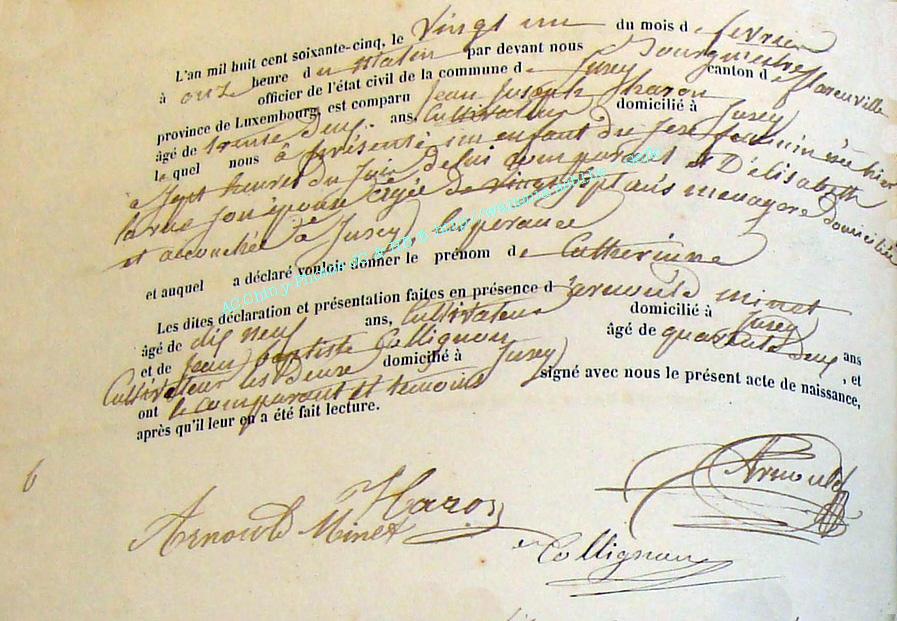 L'an mil huit cent soixante-cinq, le vingt un du mois de fevrier
à onze heure du matin par devant nous Bourgmestre
officier de l'état civil de la commune de Jusey canton de
province de Luxembourg, est comparu Jean Joseph Hazon
âgé de trente deux ans, Cultivateur domicilié à Jusey
lequel nous à présenté un enfant du sexe feminin née hier
à sept heures du soir de lui comparant et D'élisabeth
son épouse agée de vingt sept ans menagere domiciliée
et accouchée à Jusey
et auquel a déclaré vouloir donner le prénom de Catherinne
Les dites déclaration et présentation faites en présence d'arnould minet
âgé de dix neuf ans, Cultivateur domicilié à Jusey
et de Jean baptiste Collignon âgé de quarante deux ans
Cultivateur les Deux domicilié à Jusey, et
ont le comparant et temoins signé avec nous le présent acte de naissance,
après qu'il leur en a été fait lecture.
6
Arnould
Hazon
Arnould Minet
Collignon